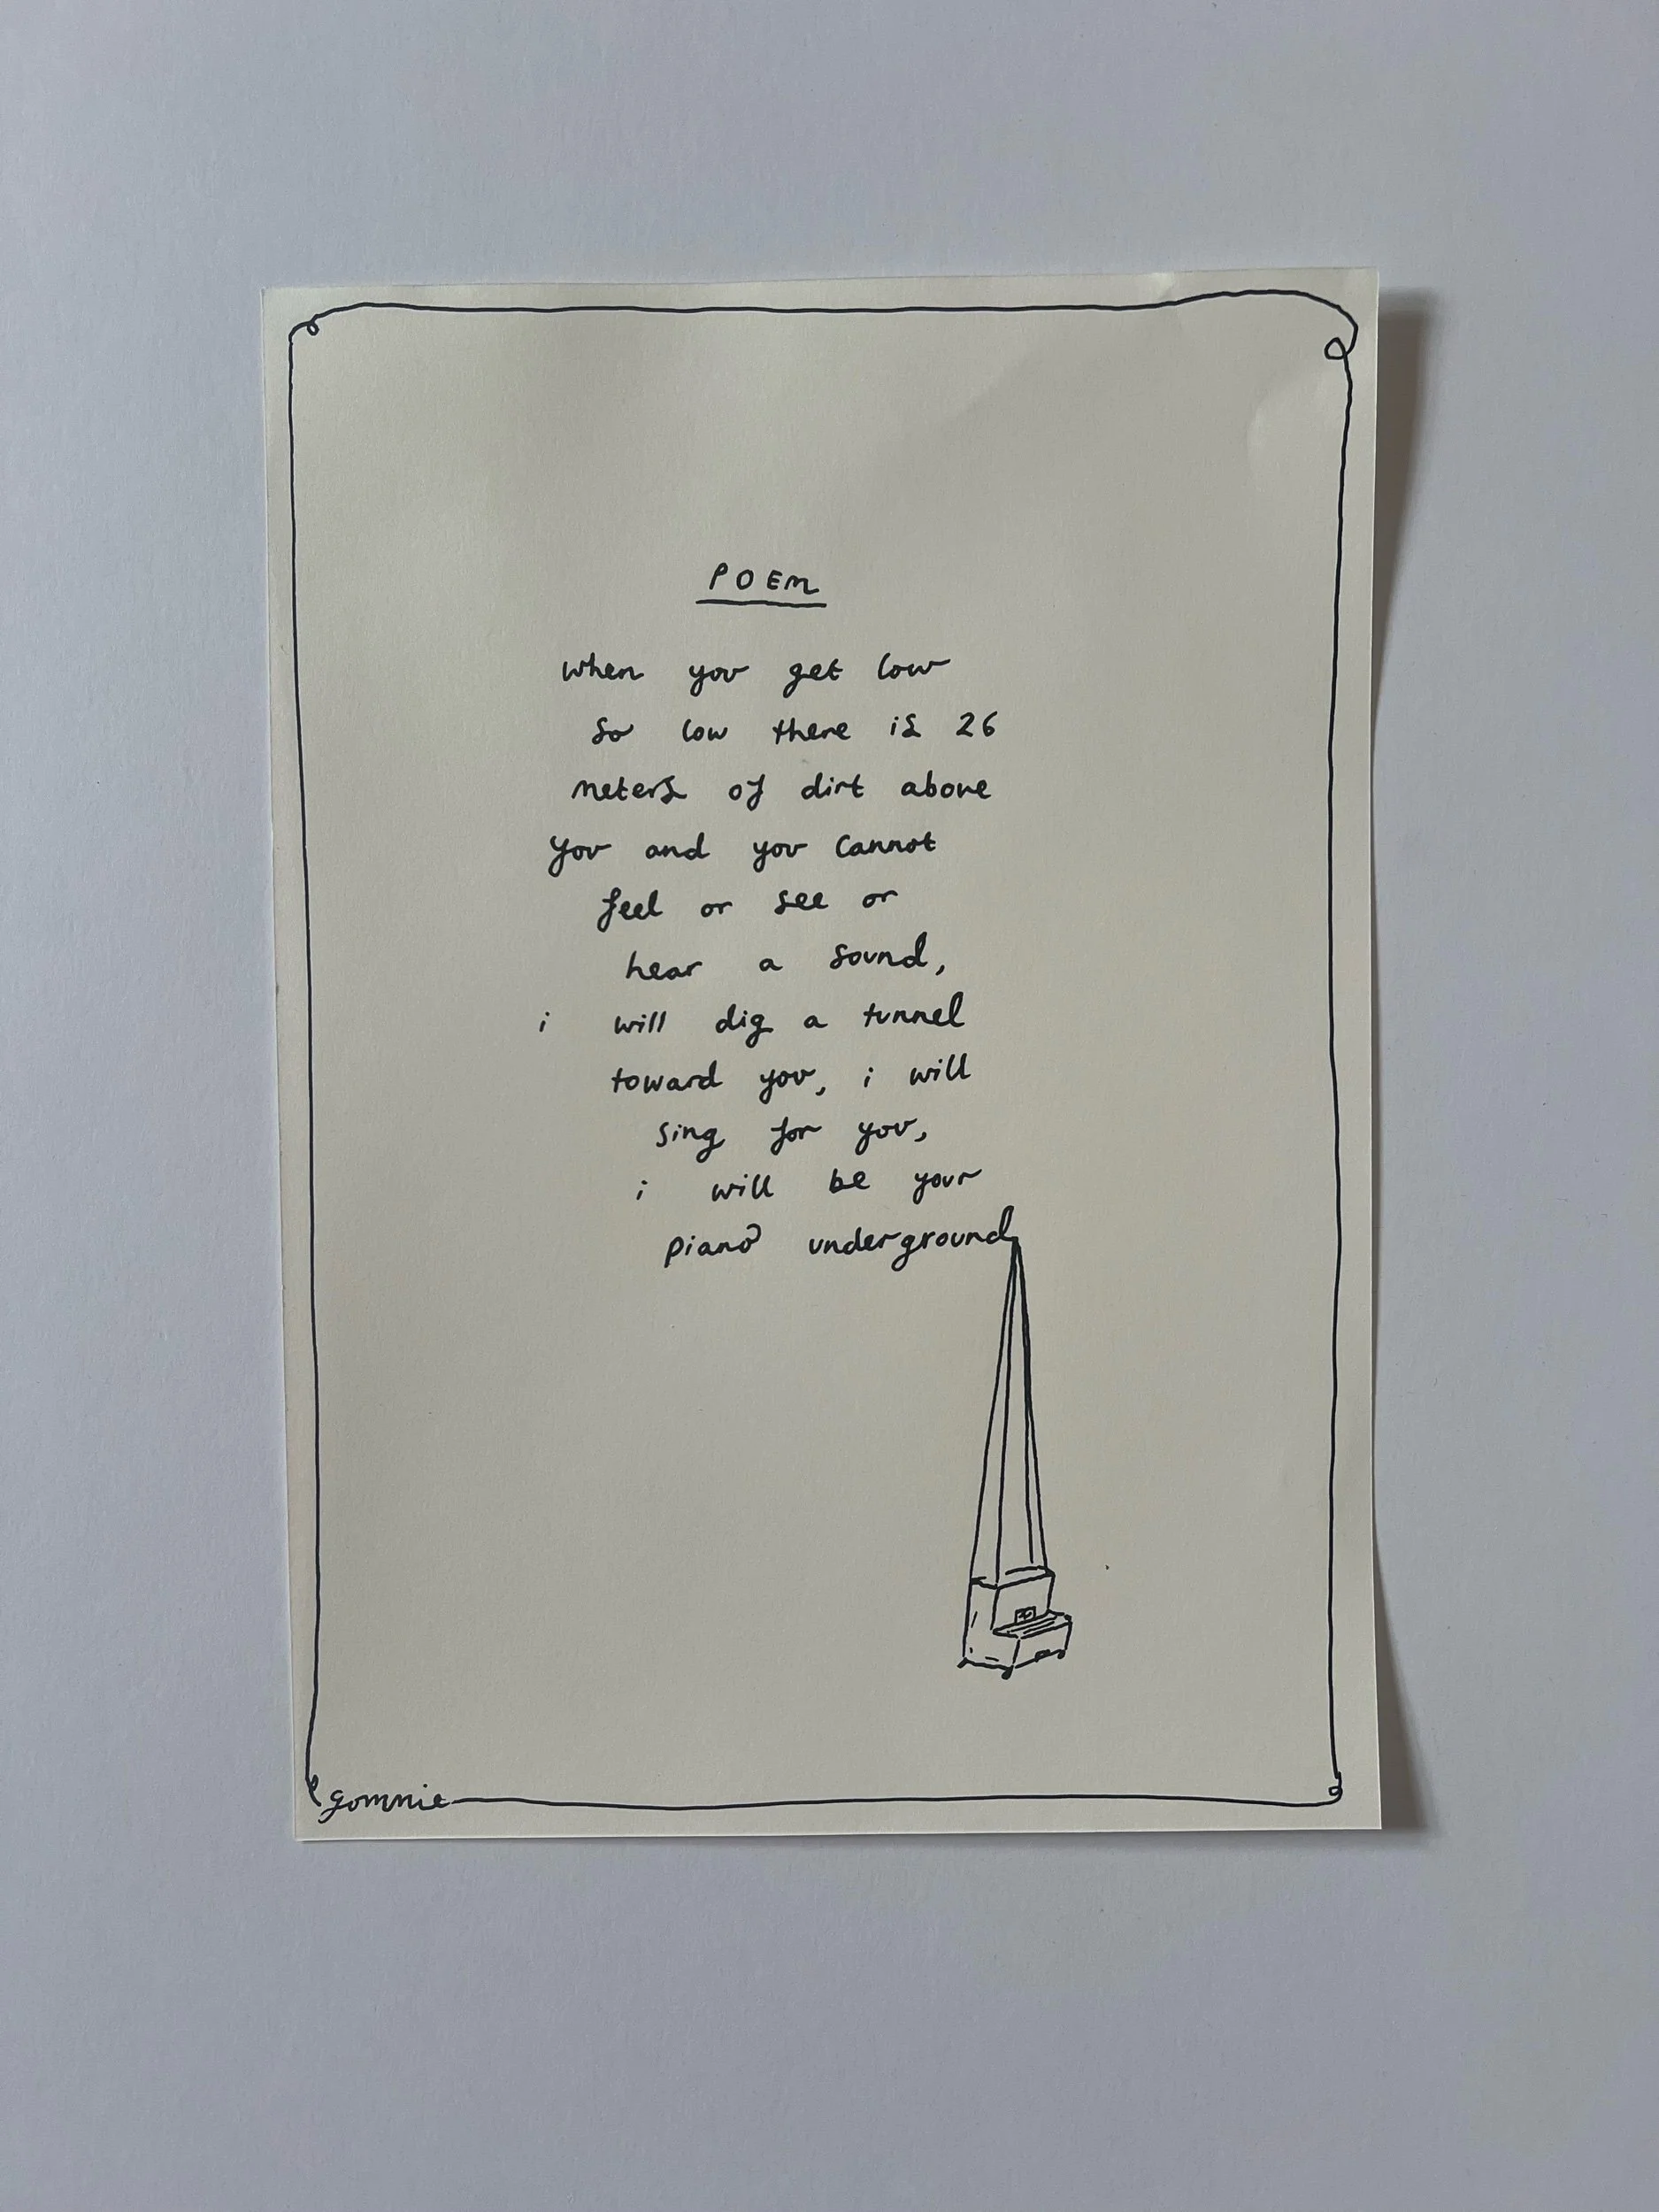 POEM
when you get low
so low there is 26
meters of dirt above
you and you cannot
feel or see or
hear a sound,
i will dig a tunnel
toward you, i will
sing for you,
i will be your
piano underground
gomnie